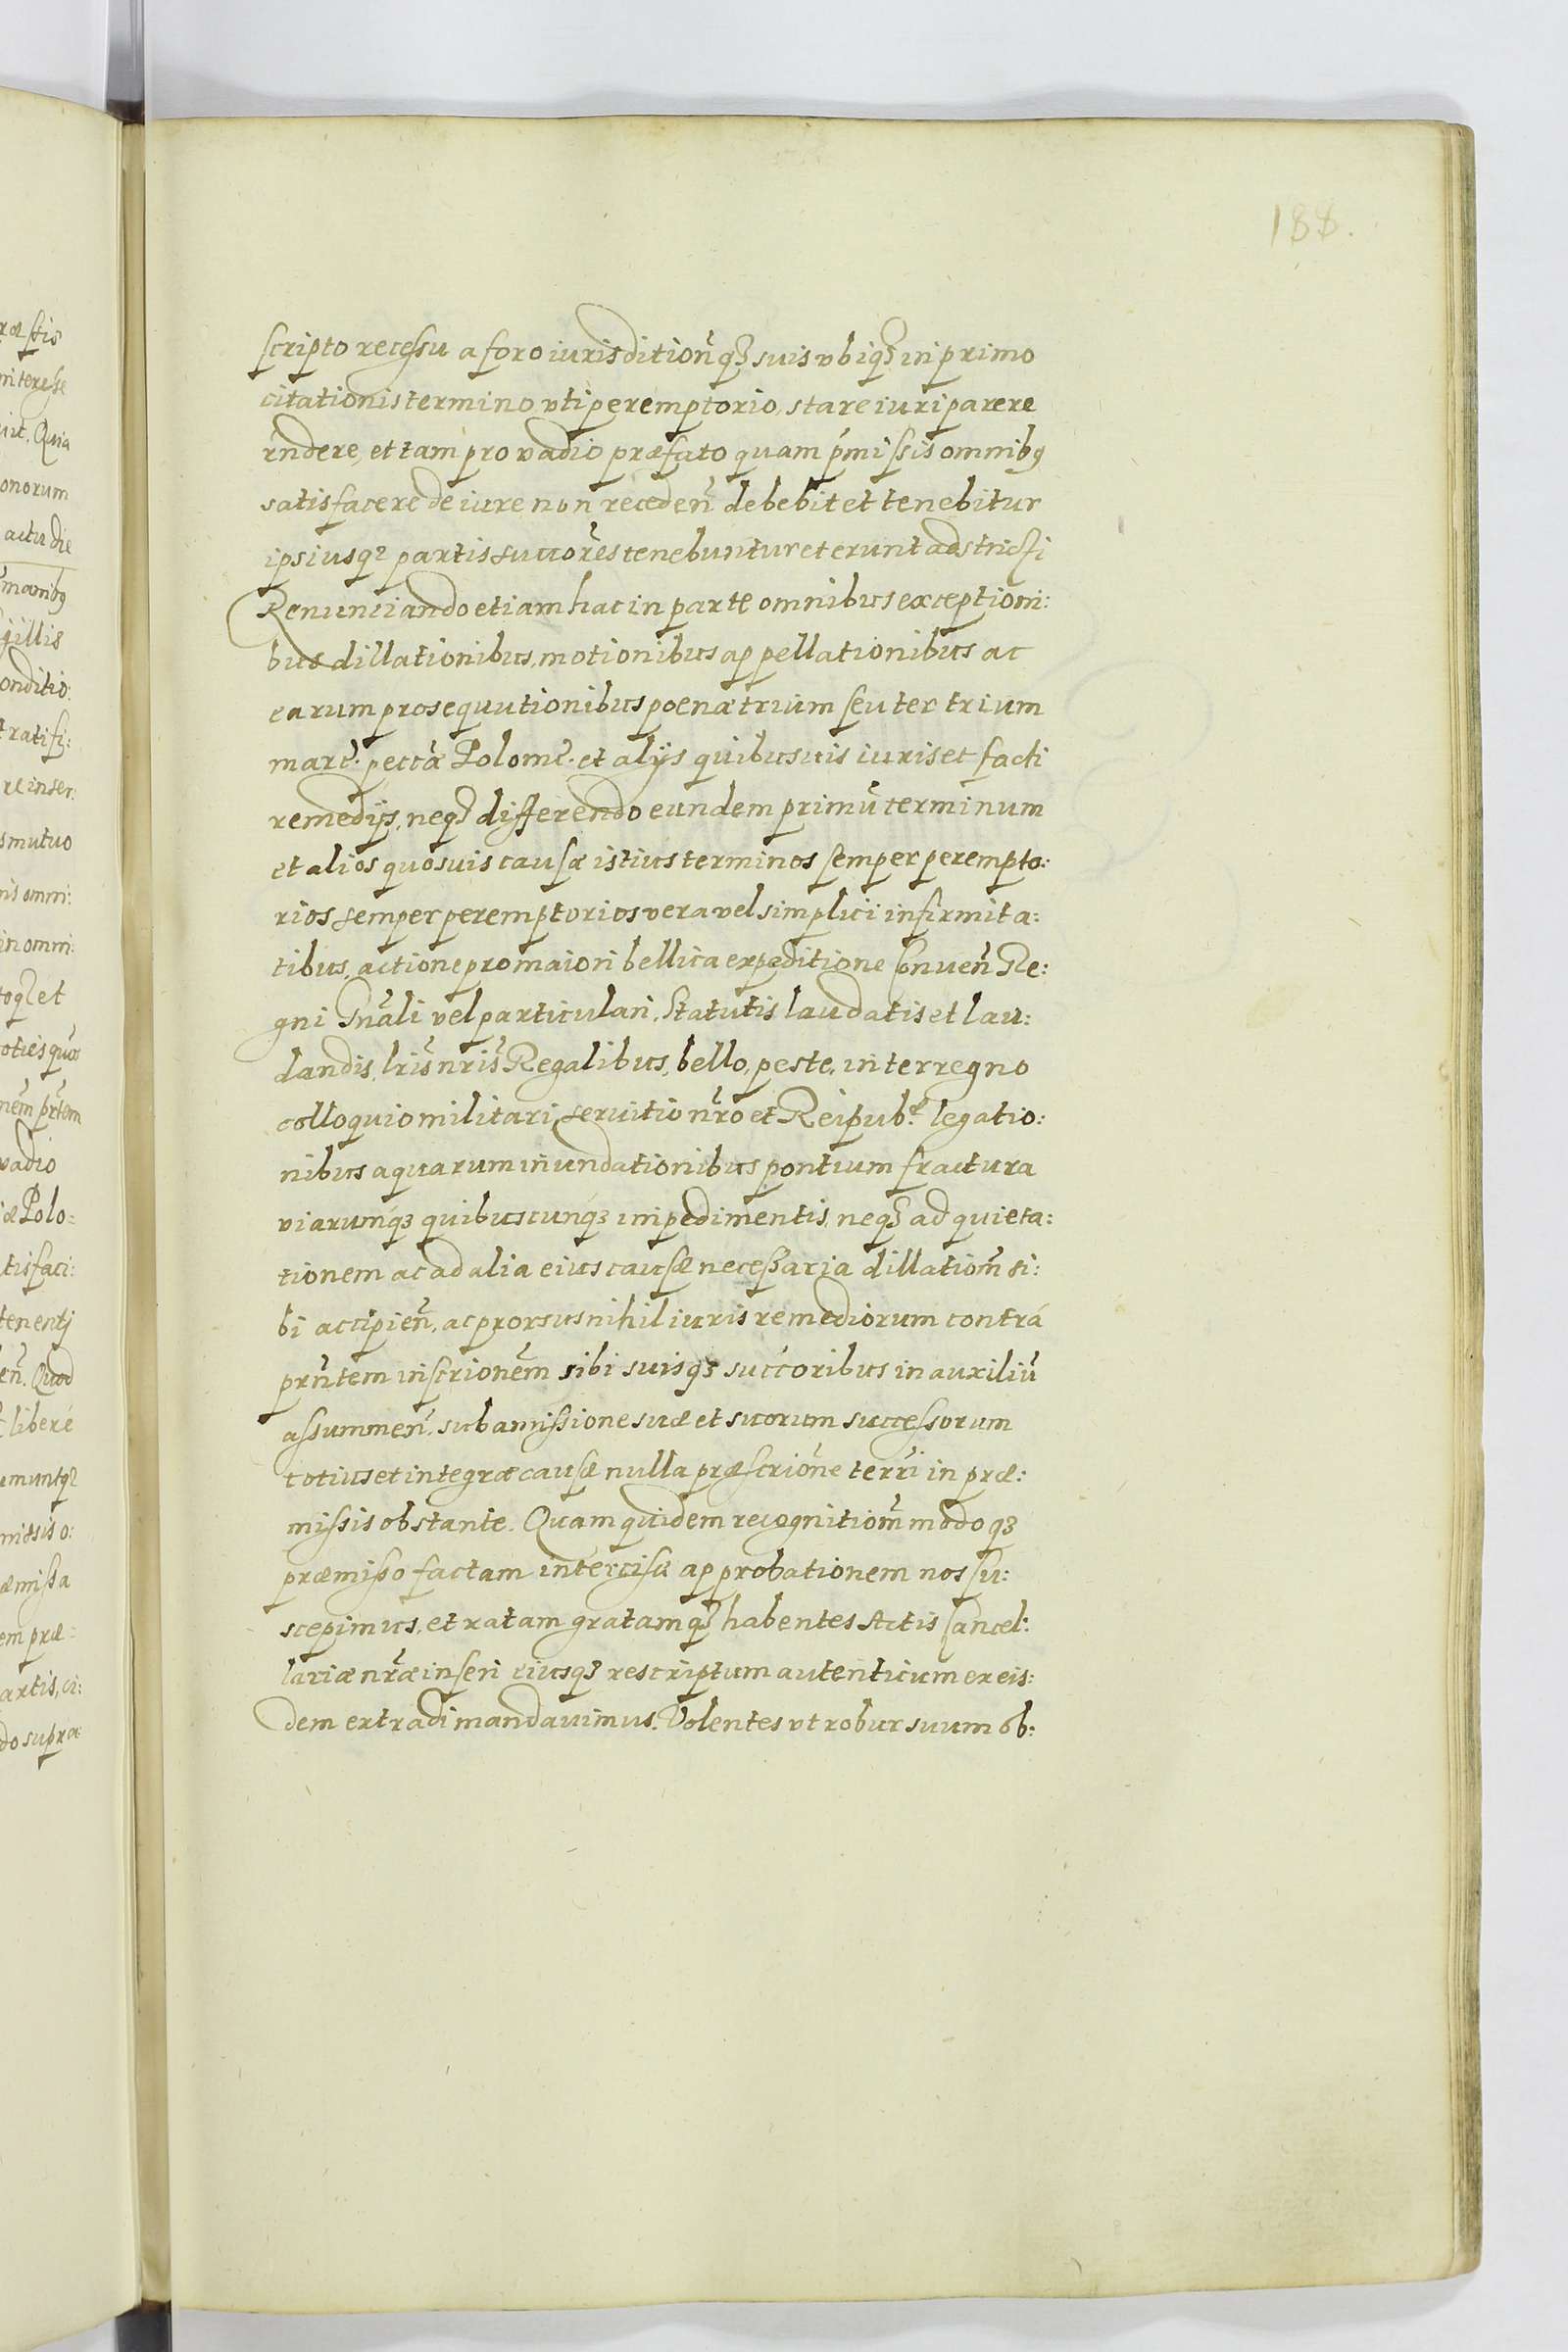 188.
scripto recessu a foro iurisdition̄q₃ suis vbiq₃ in primo
citationis termino vti peremptorio, stare iuri parere
rn̄dere, et tam pro vadio præfato quam p̄missis omnibꝯ
satisfacere de iure non receden̄ debebit et tenebitur
ipsiusq₃ partis succor̄es tenebuntur et erunt adstricti
Renunciando etiam hac in parte omnibus exceptioni:
bus dillationibus, motionibus appellationibus ac
earum prosequutionibus poenæ trium seu ter trium
marc̄. peccā Polonic̄. et alijs quibusuis iuris et facti
remedijs, neq₃ differendo eundem primū terminum
et alios quosuis causæ istius terminos semper perempto:
rios semper peremptorios vera vel simplici infirmita:
tibus, actione pro maiori bellica expeditione Conuen̄ Re:
gni Gn̄ali vel particulari, Statutis laudatis et lau:
dandis, lris̄ nris̄ Regalibus, bello, peste, interregno
colloquio militari seruitio nr̄o et Reipub.ᵉ legatio:
nibus aquarum inundationibus pontium fractura
viarumq₃ quibuscunq₃ impedimentis, neq₃ ad quieta:
tionem ac ad alia eius causæ necessaria dillatiom̄ si:
bi accipien̄, ac prorsus nihil iuris remediorum contrá
prn̄tem inscrionēm sibi suisq₃ succ̄oribus in auxiliū
assummen̄, sub amissione suæ et suorum successorum
totius et integræ causæ nulla præscriōne terr̄i in præ:
missis obstante. Quam quidem recognitiom̄ modo q₃
præmisso factam intercisæ approbationem nos su:
scepimus, et ratam gratamq₃ habentes Actis Cancel:
lariæ nr̄æ inseri eiusq₃ rescriptum autenticum ex eis:
dem extradi mandauimus. Volentes vt robur suum ob: